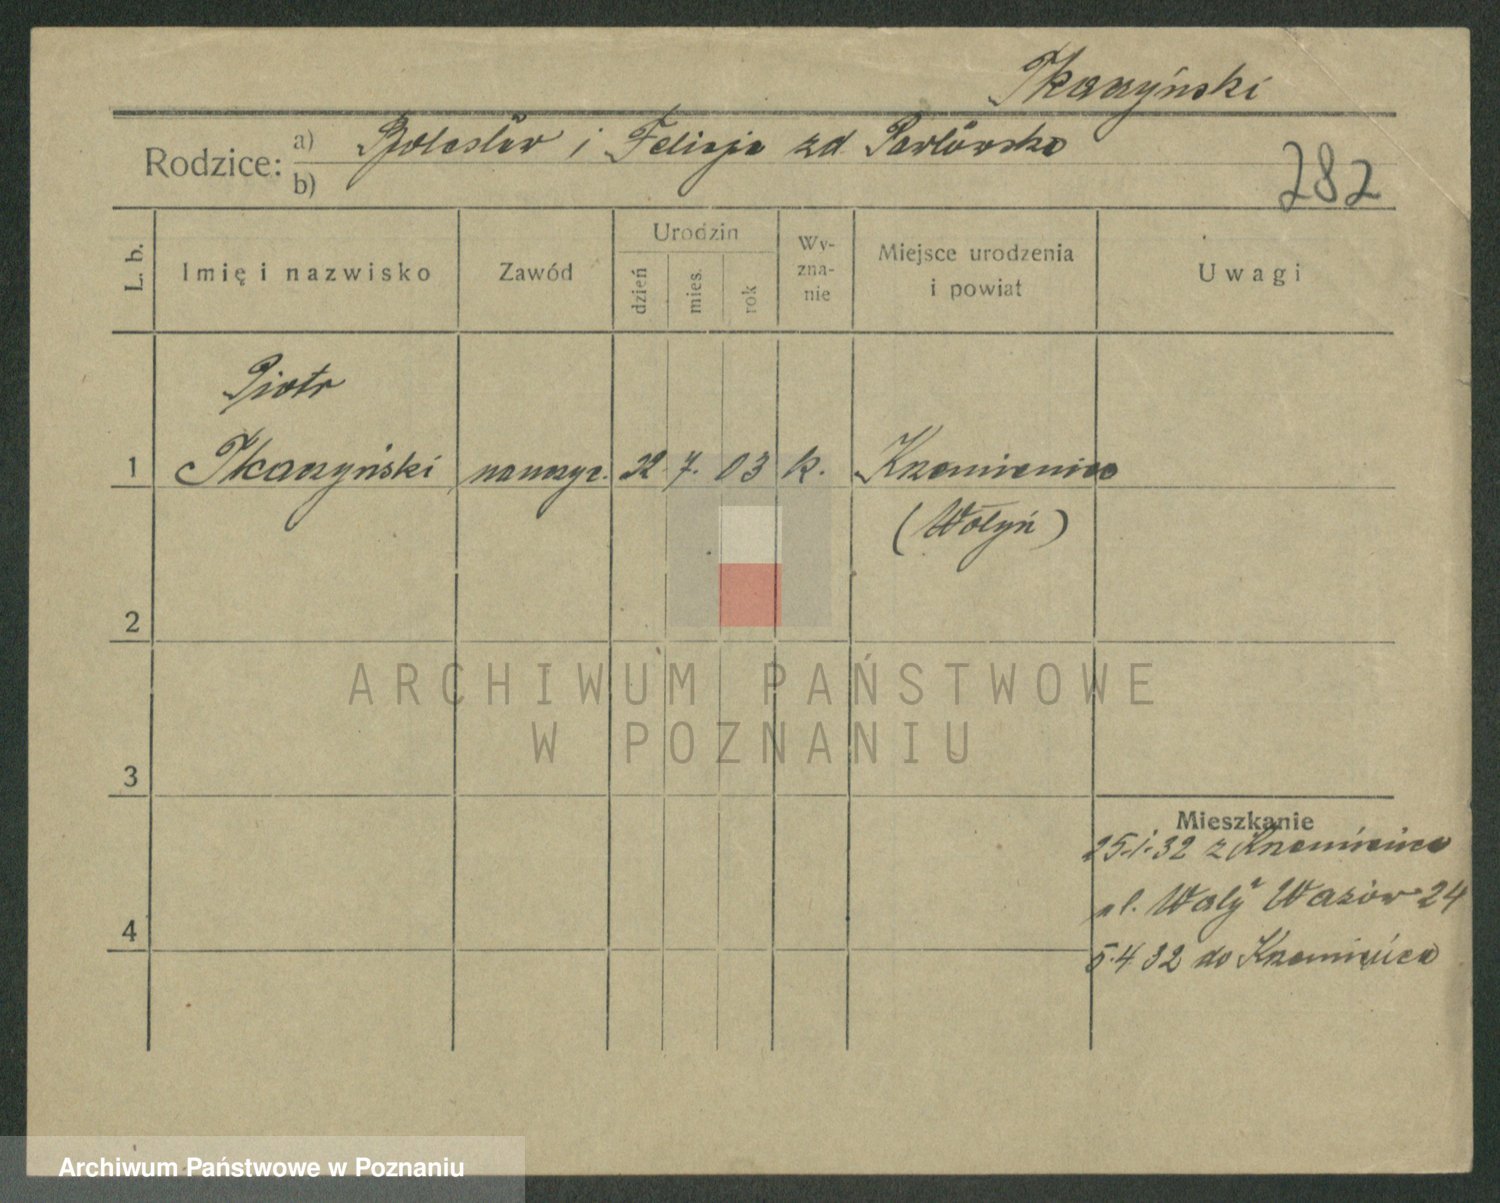 Tkaczyński
Rodzice: a) Bolesław i Felicja zd Pawłowska
b)
282
L. b.
Imię i nazwisko
Zawód
Urodzin
dzień
mies.
rok
Wy-
zna-
nie
Miejsce urodzenia
i powiat
Uwagi
Piotr
1 Tkaczyński nauczyc. 22. 7. 03 k. Krzemieniec
(Wołyń)
2
3
4
Mieszkanie
25.1.32 z Krzemieńca
ul. Wały Wazów 24
5.4 32 do Krzemieńca
ARCHIWUM PAŃSTWOWE
W POZNANIU
Archiwum Państwowe w Poznaniu